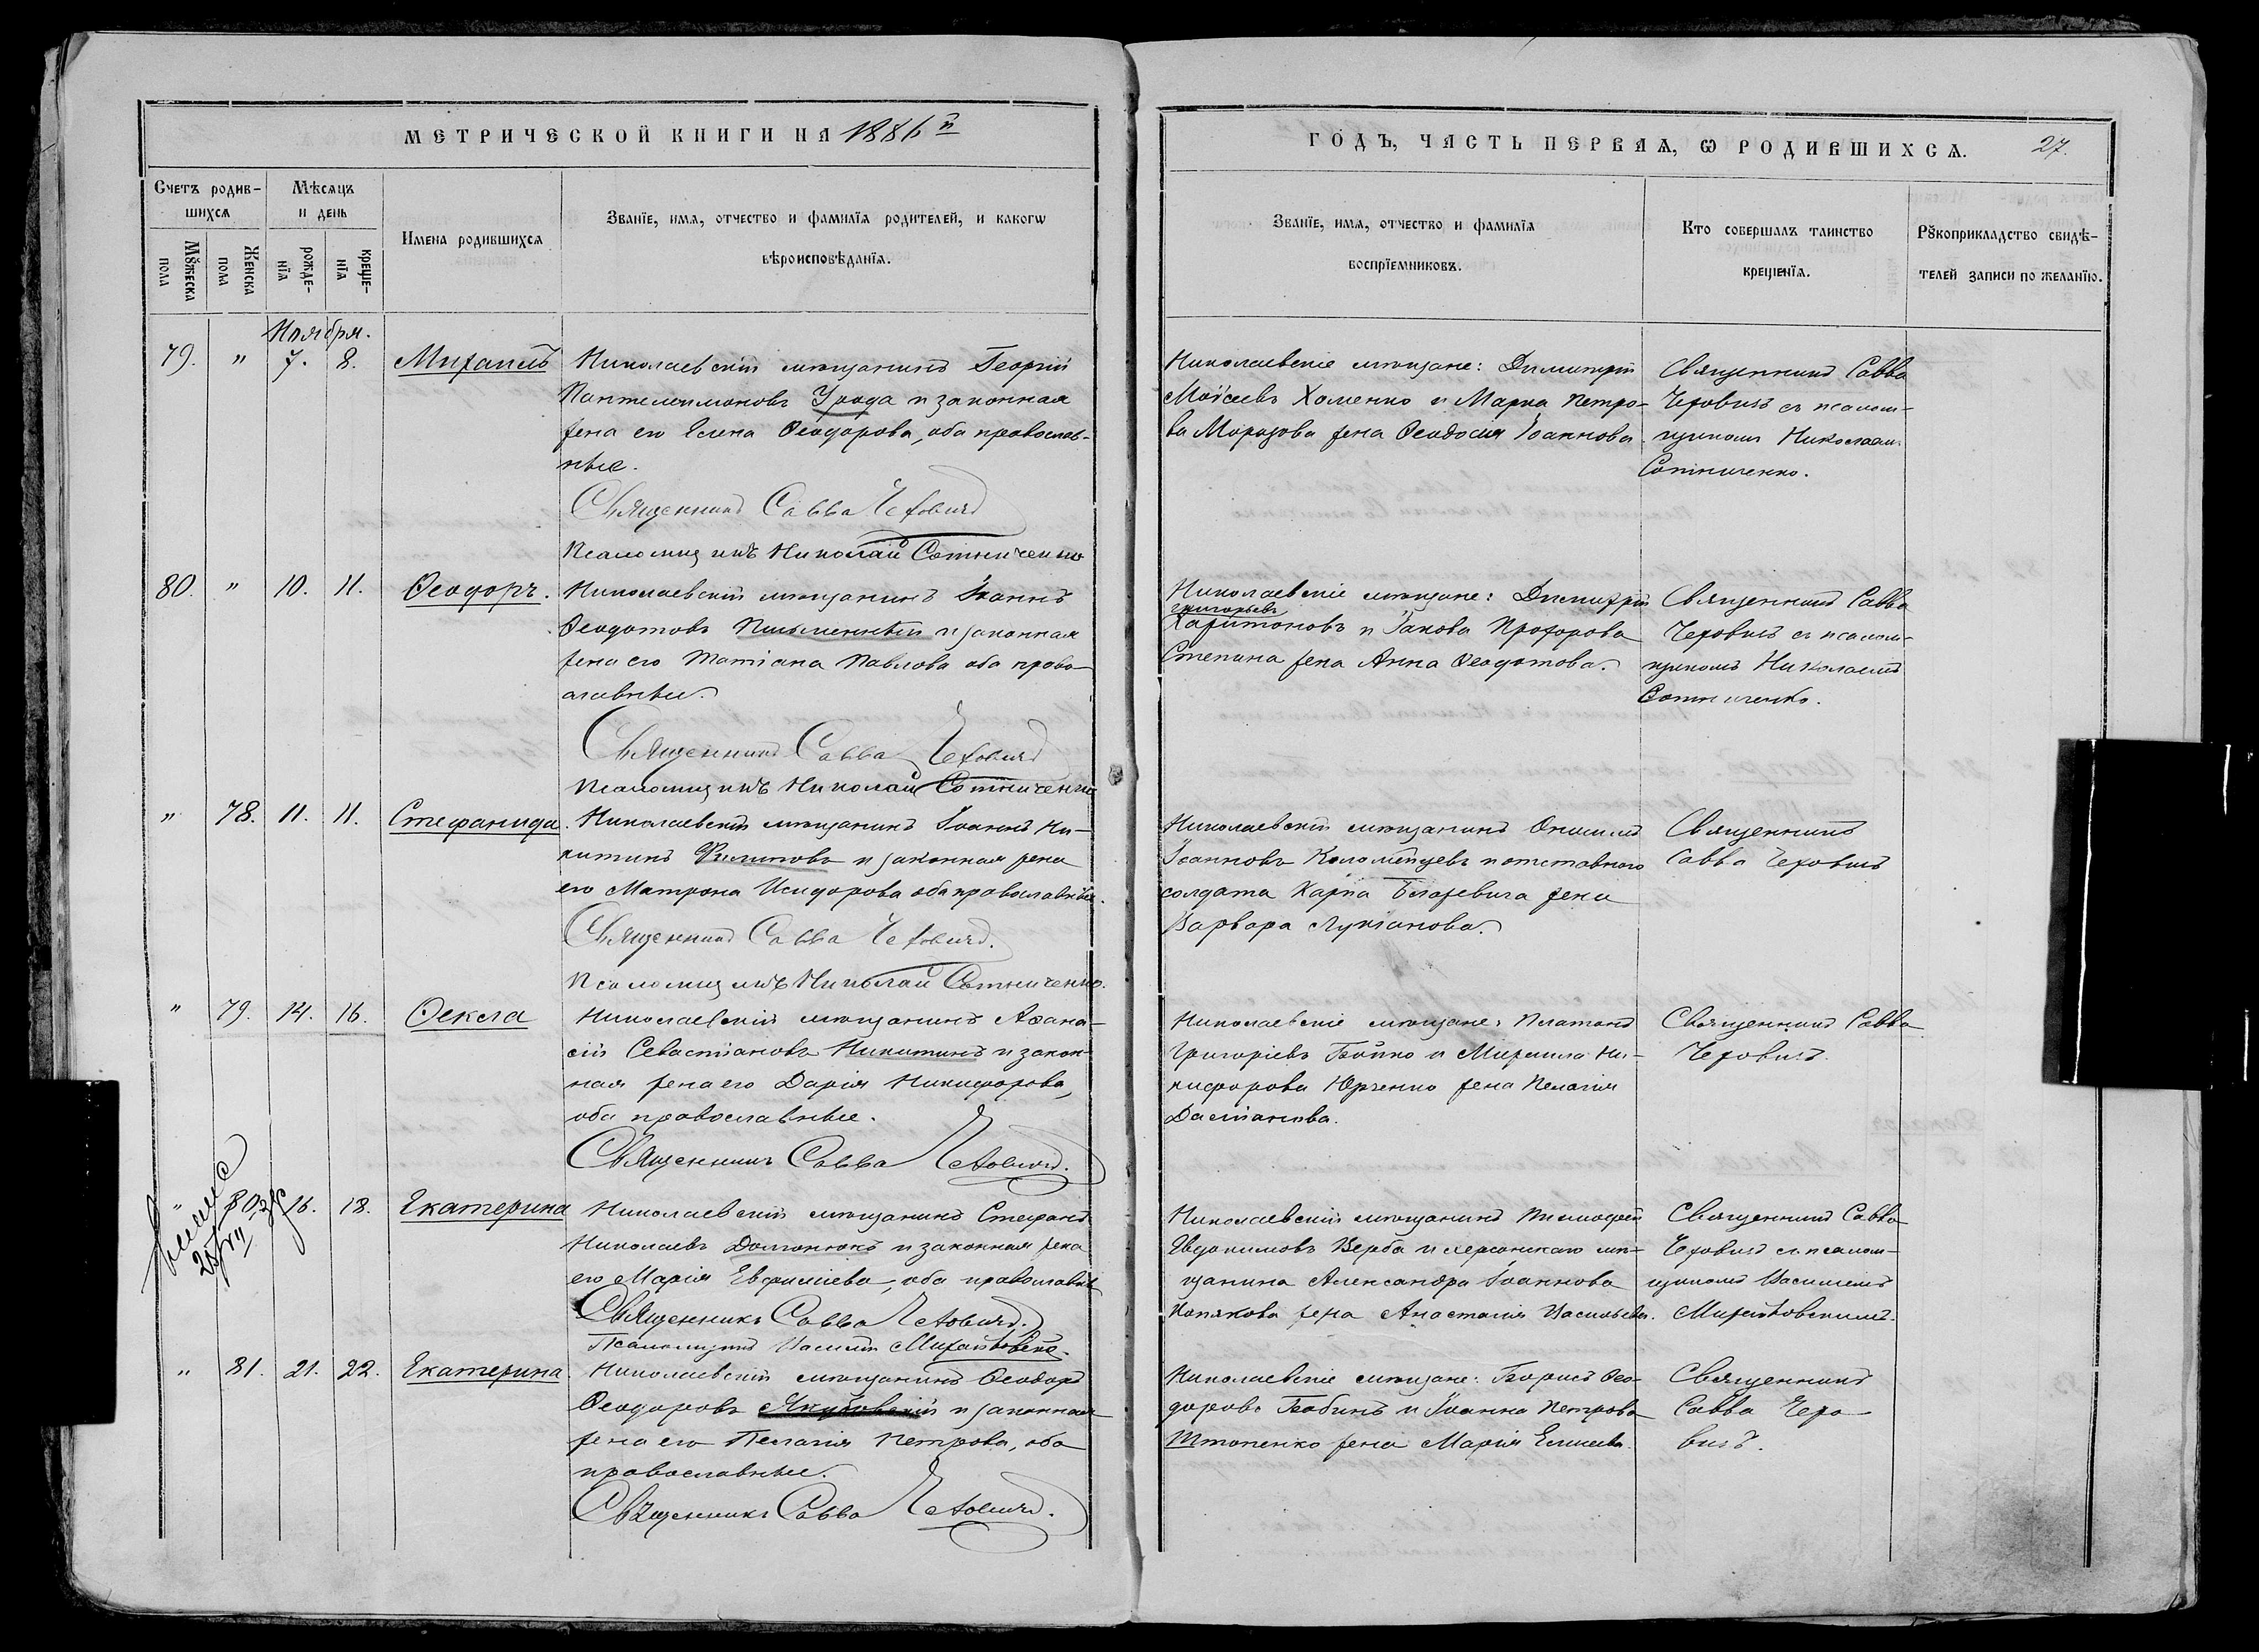 МЕТРИЧЕСКОЙ КНИГИ НА 1886 й
ГОДЪ, ЧАСТЬ ПЕРВАѦ, Ѡ РОДИВШИХСѦ. 27.
Счетъ родив-
шихсѧ
Мѣсѧцъ
и день
Мꙋжеска
пола
Женска
пола
рожде-
нїѧ
креще-
нїѧ
Имена родившихсѧ
Званїе, имѧ, отчество и фамилїѧ родителей, и какогѡ
вѣроисповѣданїѧ.
Званїе, имѧ, отчество и фамилїѧ
воспрїемниковъ.
Кто совершалъ таинство
крещенїѧ.
Рꙋкоприкладство свидѣ-
телей записи по желанїю.
Ноября.
79. " 7. 8. Михаилъ
Николаевскій мѣщанинъ Георгій
Пантелеимоновъ Урода и законная
жена его Елена Ѳеодорова, оба православ-
ные.
Священникъ Савва Чехович
Псаломщикъ Николай Сотниченко
Николаевскіе мѣщане: Димитрій
Моісеевъ Хоменко и Марка Петро-
ва Морозова жена Ѳеодосія Іоаннова
Священникъ Савва
Чеховичъ съ псалом-
щикомъ Николаем
Сотниченко.
80. " 10. 11. Ѳеодоръ.
Николаевскій мѣщанинъ Іоаннъ
Ѳеодотовъ Письменный и законная
жена его Татіана Павлова оба право-
славные.
Священникъ Савва Чехович
Псаломщикъ Николай Сотниченко
Николаевскіе мѣщане: Димитрій
Григорьевъ
Харитоновъ и Іакова Прохорова
Степина жена Анна Ѳеодотова.
Священникъ Савва
Чеховичъ съ псалом-
щикомъ Николаемъ
Сотниченко.
" 78. 11. 11. Стефанида.
Николаевскій мѣщанинъ Іоаннъ Ни-
китинъ Филиповъ и законная жена
его Матрона Исидорова оба православные.
Священникъ Савва Чехович.
Псаломщикъ Николай Сотниченко.
Николаевскій мѣщанинъ Онисимъ
Іоанновъ Коломѣйцевъ и отставного
солдата Карпа жена
Варвара Лукіанова.
Священникъ
Савва Чеховичъ
" 79. 14. 16. Ѳекла
Николаевскій мѣщанинъ Аѳана-
сій Севастіановъ Никитинъ и закон-
ная жена его Дарія Никифорова,
оба православные.
Священникъ Савва Чехович.
Николаевскіе мѣщане: Платонъ
Григоріевъ Бойко и Михаила Ни-
кифорова Юрченко жена Пелагія
Даміанова.
Священникъ Савва
Чеховичъ.
" 80. 16. 18. Екатерина
Николаевскій мѣщанинъ Стефанъ
Николаевъ Долгонюкъ и законная жена
его Марія Евфиміева, оба православн
Священникъ Савва Чехович.
Псаломщикъ Василій
Николаевскій мѣщанинъ Тимофей
Евдокимовъ Верба и херсонскаго мѣ-
щанина Александра Іоаннова
жена Анастасія Васильева.
Священникъ Савва
Чеховичъ съ псалом-
щикомъ Василіемъ
" 81. 21. 22. Екатерина.
Николаевскій мѣщанинъ Ѳеодоръ
Ѳеодоровъ Якубовскій и законная
жена его Пелагія Петрова, оба
православные.
Священникъ Савва Чехович.
Николаевскіе мѣщане: Борисъ Ѳео-
доровъ Бабинъ и Іоанна Петрова
жена Марія Елисеева.
Священникъ
Савва Чехо-
вичъ.